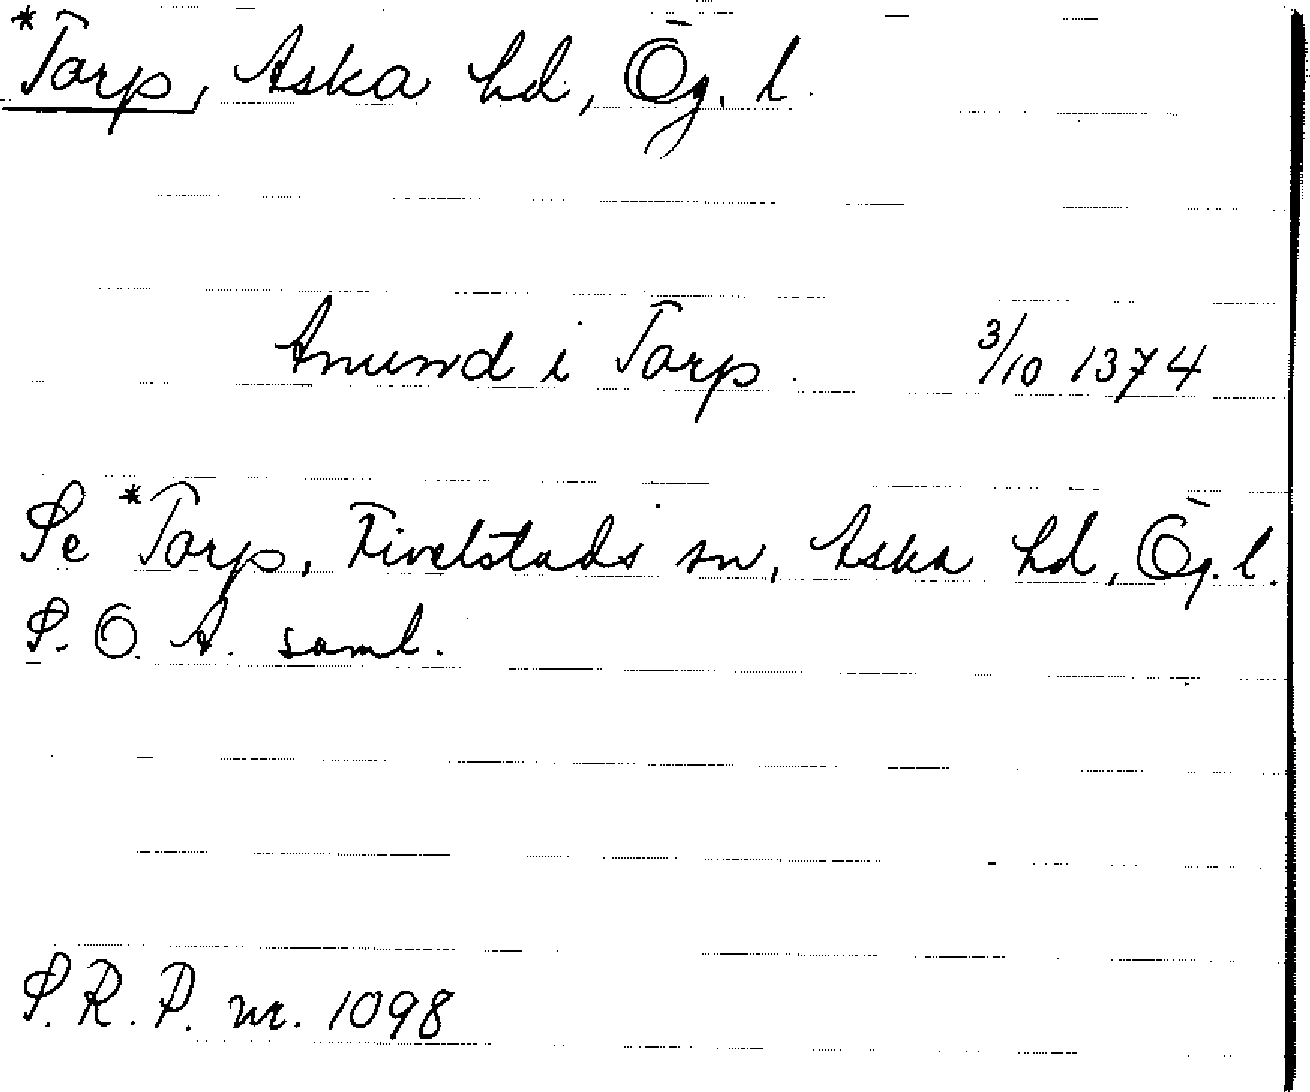 *Torp, Aska hd, Ög. l.
Anund i Torp. 3/10 1374
Se *Torp, Fivelstads sn, Aska hd, Ög. l.
S. O. A. saml.
S. R. P. nr. 1098